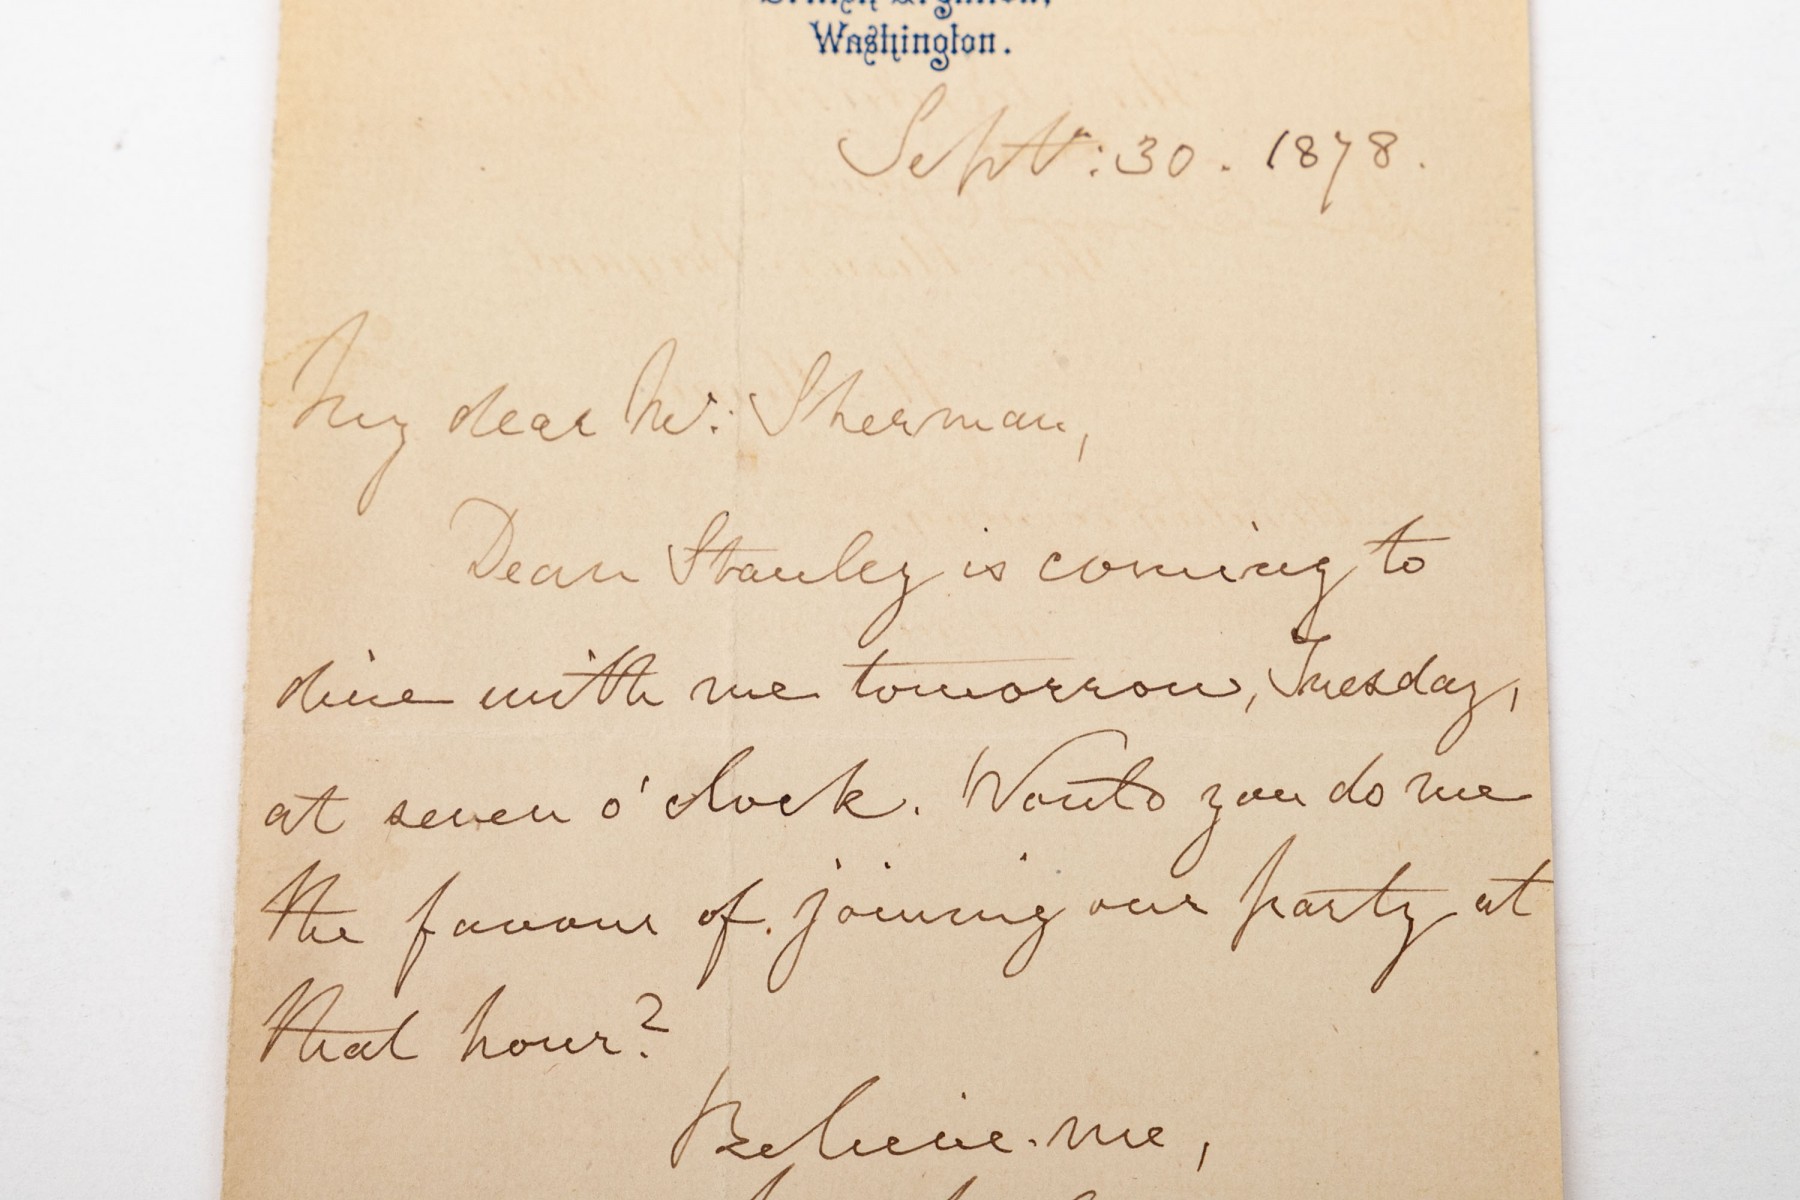 British Legation,
Washington.
Septr: 30. 1878.
My dear Mr: Sherman,
Dean Stanley is coming to
dine with me tomorrow, Tuesday,
at seven o'clock. Would you do me
the favour of joining our party at
that hour?
Believe me,